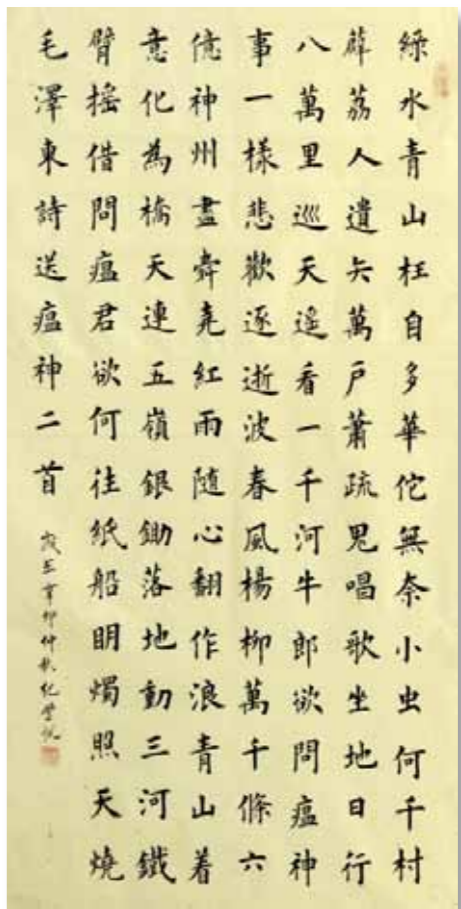 綠水青山枉自多華佗無奈小虫何千村
薜荔人遺矢萬戶蕭疏鬼唱歌坐地日行
八萬里巡天遙看一千河牛郎欲問瘟神
事一樣悲歡逐逝波春風楊柳萬千條六
億神州盡舜堯紅雨隨心翻作浪青山着
意化為橋天連五嶺銀鋤落地動三河鐵
臂搖借問瘟君欲何往紙船明燭照天燒
毛澤東詩送瘟神二首
歲在辛卯仲秋紀學